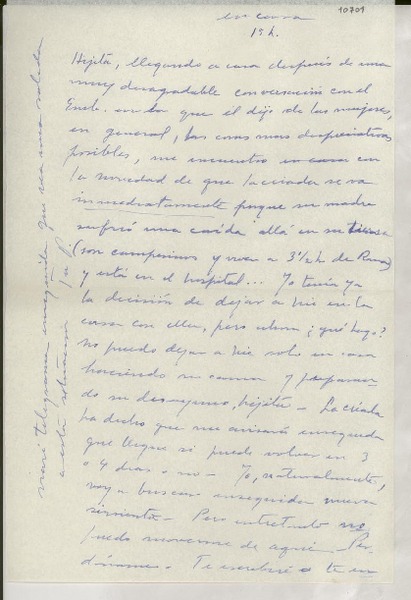 10709
en casa
15 h.
Hijita, llegando a casa después de una
muy desagradable conversación con el
Emb. en la que él dijo de las mujeres,
en general, las cosas mas despreciativas
posibles, me encuentro en casa con
la novedad de que la criada se va
inmediatamente porque su madre
sufrió una caída allá en su
(son campesinos y viven a 3 1/2 h de Roma)
y está en el hospital... Yo tenía ya
la decisión de dejar a en la
casa con ella, pero ahora ¿qué hago?
No puedo dejar a solo en casa
haciendo su cama y preparan-
do su desayuno, hijita — La criada
ha dicho que me avisará enseguida
que llegue si puede volver en 3
o 4 días o no — Yo, naturalmente,
voy a buscar enseguida nueva
sirvienta — Pero entretanto no
puedo moverme de aquí. Per-
dóname. Te escribiré o te en-
viaré telegrama enseguida que vea una salida
a esta situación